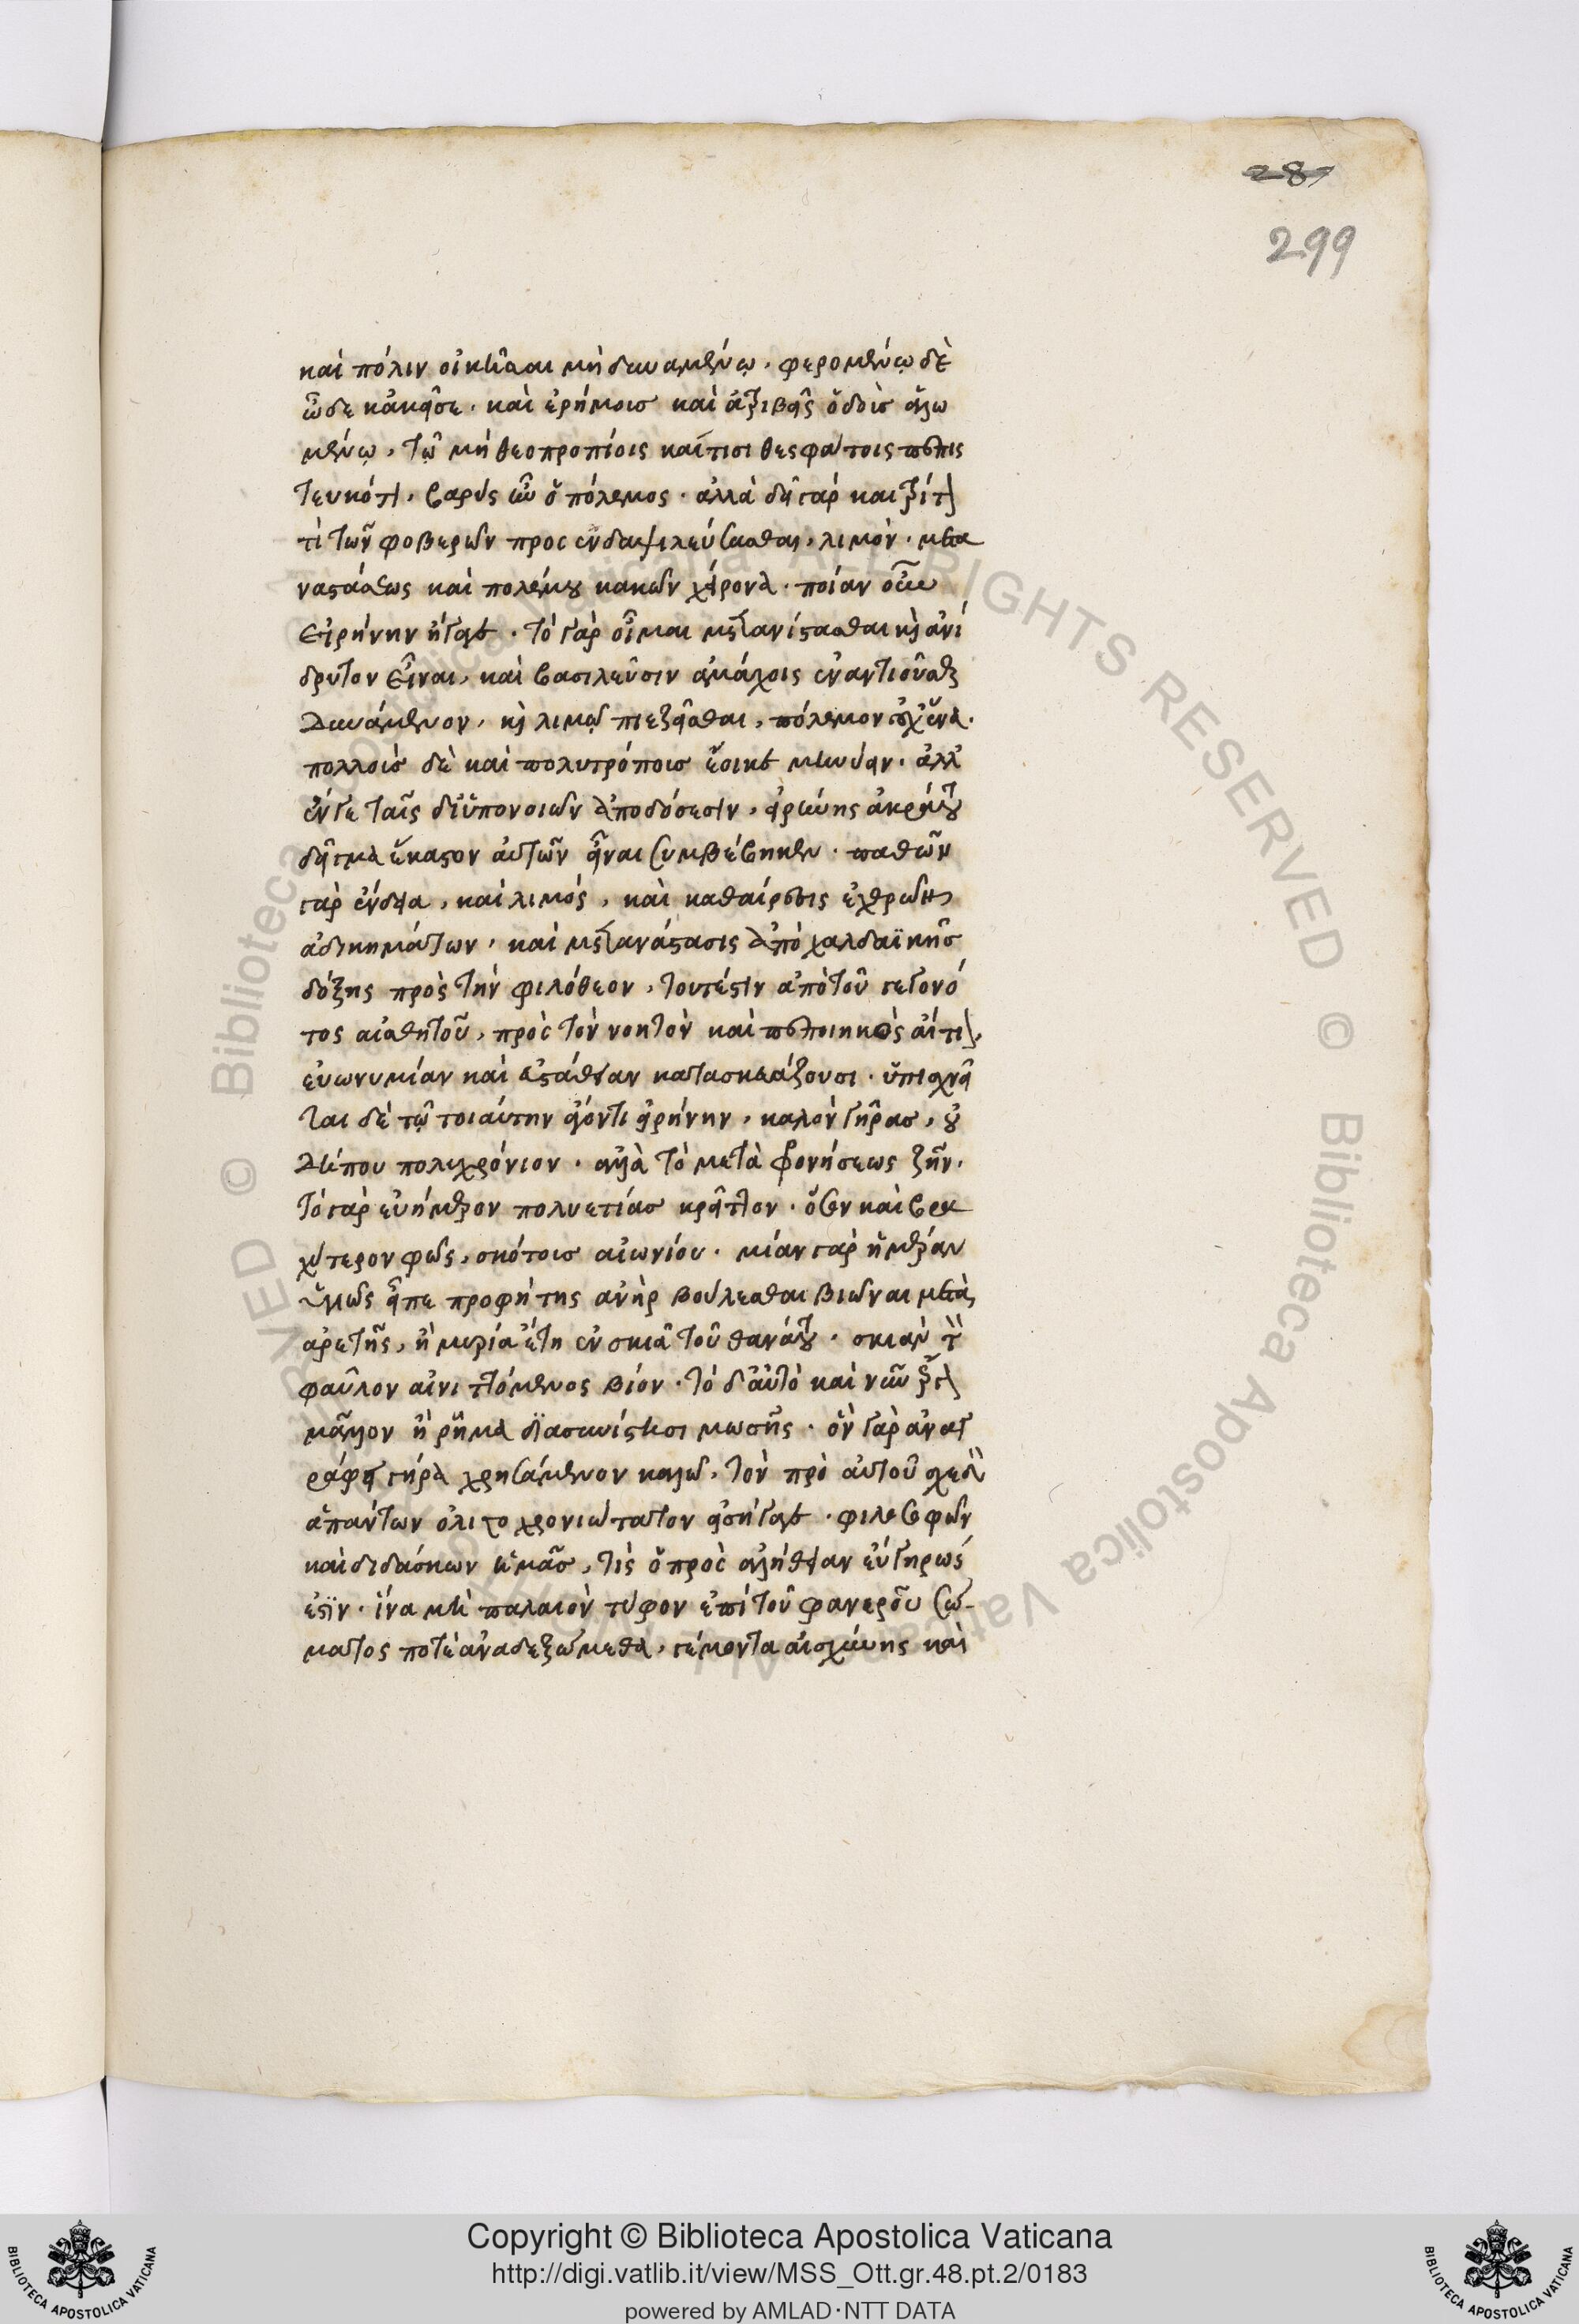 287
299
καὶ πόλιν οἰκῆσαι μὴ δυναμένῳ, φερομένῳ δὲ
ὧδε κἀκεῖσε· καὶ ἐρήμοις καὶ ἀτριβεῖς ὁδοῖς ἀλω
μένῳ, τῷ μὴ θεοπροπίοις καί τισι θεσφάτοις πεπις
τευκότι, βαρὺς ὢν ὁ πόλεμος· ἀλλὰ δὴ γὰρ καὶ τρίτον
τὶ τῶν φοβερῶν προσενδαψιλεύσασθαι, λιμὸν· μετα
ναστάσεως καὶ πολέμου κακῶν χείρονα· ποίαν οὖν
εἰρήνην ἤγαγε· τὸ γὰρ οἶμαι μετανίστασθαι καὶ ἀνί
δρυτον εἶναι, καὶ βασιλεῦσιν ἀμάχοις ἐναντιοῦσθαι
δυνάμενον, καὶ λιμῷ πιεζεῖσθαι, πόλεμον οὐχ ἕνα·
πολλοῖς δὲ καὶ πολυτρόποις ἔοικε μηνύειν· ἀλλ'
ἔν γε ταῖς δι' ὑπονοιῶν ἀποδόσεσιν, εἰρήνης ἀκράτου
δεῖγμα ἕκαστον αὐτῶν εἶναι συμβέβηκεν· παθῶν
γὰρ ἔνδεια, καὶ λιμός, καὶ καθαίρεσις ἐχθρῶν
ἀδικημάτων, καὶ μετανάστασις ἀπὸ χαλδαϊκῆς
δόξης πρὸς τὴν φιλόθεον, τουτέστιν ἀπὸ τοῦ γεγονό
τος αἰσθητοῦ, πρὸς τὸν νοητὸν καὶ πεποιηκὸς αἴτιον,
εὐωνυμίαν καὶ εὐστάθειαν κατασκευάζουσι· ὑπισχνεῖ
ται δὲ τῷ τοιαύτην ἄγοντι εἰρήνην, καλὸν γῆρας, οὐ
δήπου πολυχρόνιον· ἀλλὰ τὸ μετὰ φρονήσεως ζῆν·
τὸ γὰρ εὐήμερον πολυετίας κρεῖττον· ὅσον καὶ βρα
χύτερον φῶς, σκότους αἰωνίου· μίαν γὰρ ἡμέραν
ὑμῶς εἶπε προφήτης ἀνὴρ βούλεσθαι βιῶναι μετὰ
ἀρετῆς, ἢ μυρία ἔτη ἐν σκιᾷ τοῦ θανάτου· σκιὰν τὸν
φαῦλον αἰνιττόμενος βίον· τὸ δ' αὐτὸ καὶ νῦν ἔργον
μᾶλλον ἢ ῥῆμα διασυνίστησι μωσῆς· ὃν γὰρ ἀναγ
ράφει γήρα χρησάμενον καλῷ, τὸν πρὸ αὐτοῦ σχεδὸν
ἁπάντων ὀλιγοχρονιώτατον εἰσήγαγε· φιλοσοφῶν
καὶ διδάσκων ἡμᾶς, τίς ὁ πρὸς ἀλήθειαν εὐγήρως
ἐστιν· ἵνα μὴ παλαιὸν τύφον ἐπὶ τοῦ φανεροῦ σώ-
ματος ποτὲ ἀναδεξώμεθα, γέμοντα αἰσχύνης καὶ
Copyright © Biblioteca Apostolica Vaticana
http://digi.vatlib.it/view/MSS_Ott.gr.48.pt.2/0183
powered by AMLAD·NTT DATA
BIBLIOTECA APOSTOLICA VATICANA
BIBLIOTECA APOSTOLICA VATICANA
© Biblioteca Apostolica Vaticana ALL RIGHTS RESERVED © Biblioteca Apostolica Vaticana ALL RIGHTS RESERVED